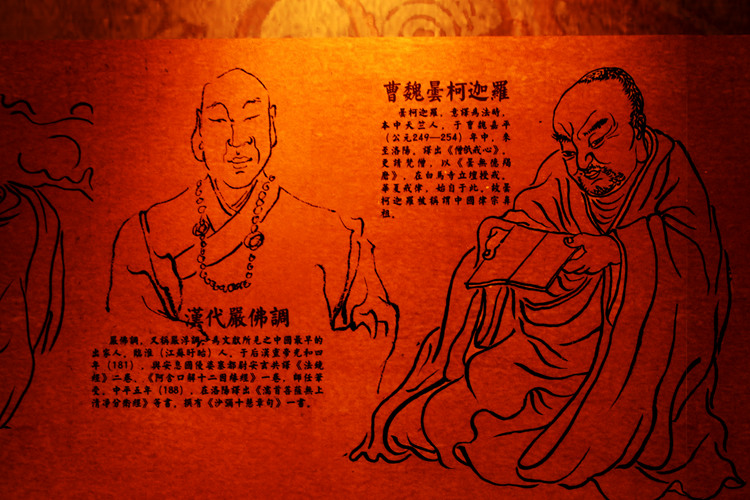 曹魏曇柯迦羅
曇柯迦羅，意譯為法時，
本中天竺人，于曹魏嘉平
（公元249—254）年中，來
至洛陽，譯出《僧祇戒心》，
更請梵僧，以《曇無德羯
磨》，在白馬寺立壇授戒。
華夏戒律，始自于此，故曇
柯迦羅被稱謂中國律宗鼻
祖。
漢代嚴佛調
嚴佛調，又稱嚴浮調，為文獻所見之中國最早的
出家人，臨淮（江蘇盱眙）人，于后漢靈帝光和四
年（181），與安息國優婆塞都尉安玄共譯《法鏡
經》二卷，《阿含口解十二因緣經》一卷，師任筆
受。中平五年（188），在洛陽譯出《濡首菩薩無上
清淨分衛經》等書，撰有《沙彌十慧章句》一書。